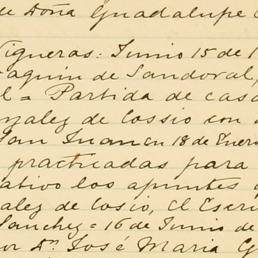 de Doña Guadalupe
Figueras: Junio 15 de 1
aquin de Sandoval,
l = Partida de casa
nzalez de Cossio con
San Juan en 18 de Ener
practicadas para
ativo los apuntes
alez de Cosio, el Escri
Sanchez = 16 de Junio de
or Dn. José Maria G